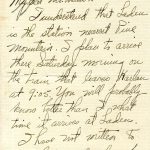 I understand that Laden
is the station nearest Pine
Mountain. I plan to arrive
there Saturday morning on
the train that leaves Harlan
at 9:05. You will probably
know better than I what
time it arrives at Laden.
I have not written to